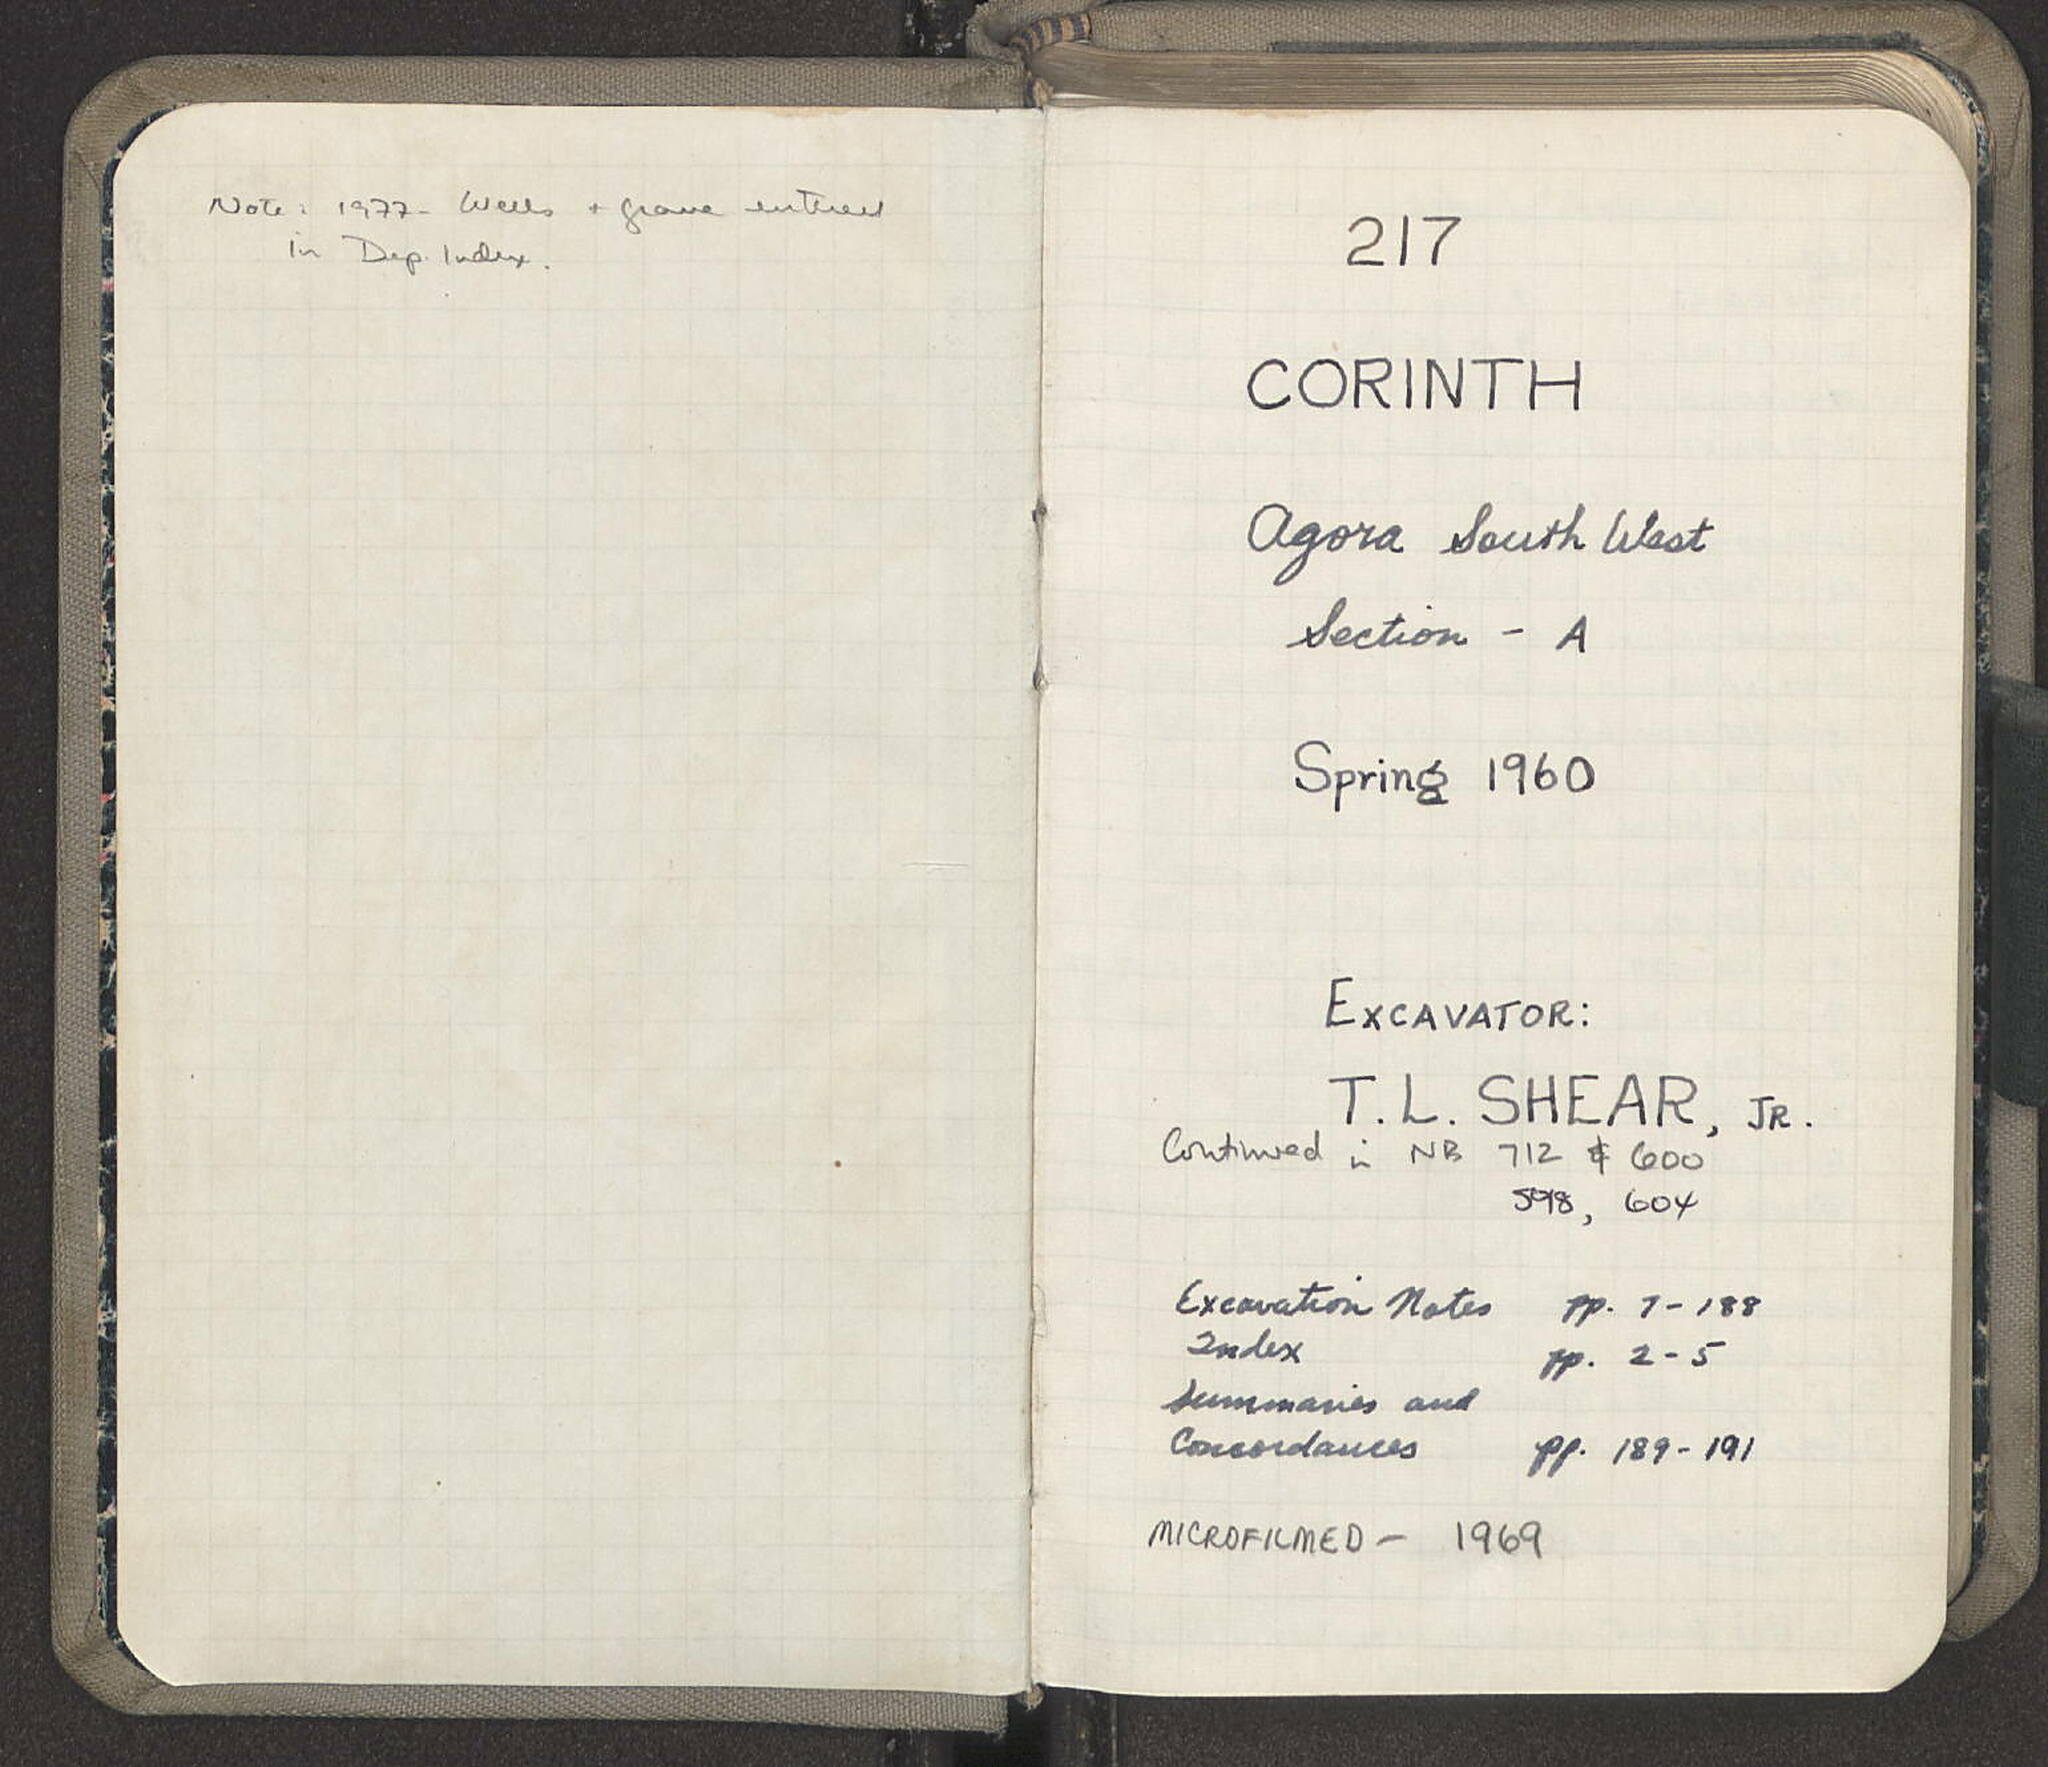 Note: 1977- Wells + grave entered
in Dep. Index.
217
CORINTH
Agora South West
Section - A
Spring 1960
EXCAVATOR:
T. L. SHEAR, JR.
Continued in NB 712 & 600
598, 604
Excavation Notes pp. 7-188
Index pp. 2-5
Summaries and
Concordances pp. 189-191
MICROFILMED - 1969